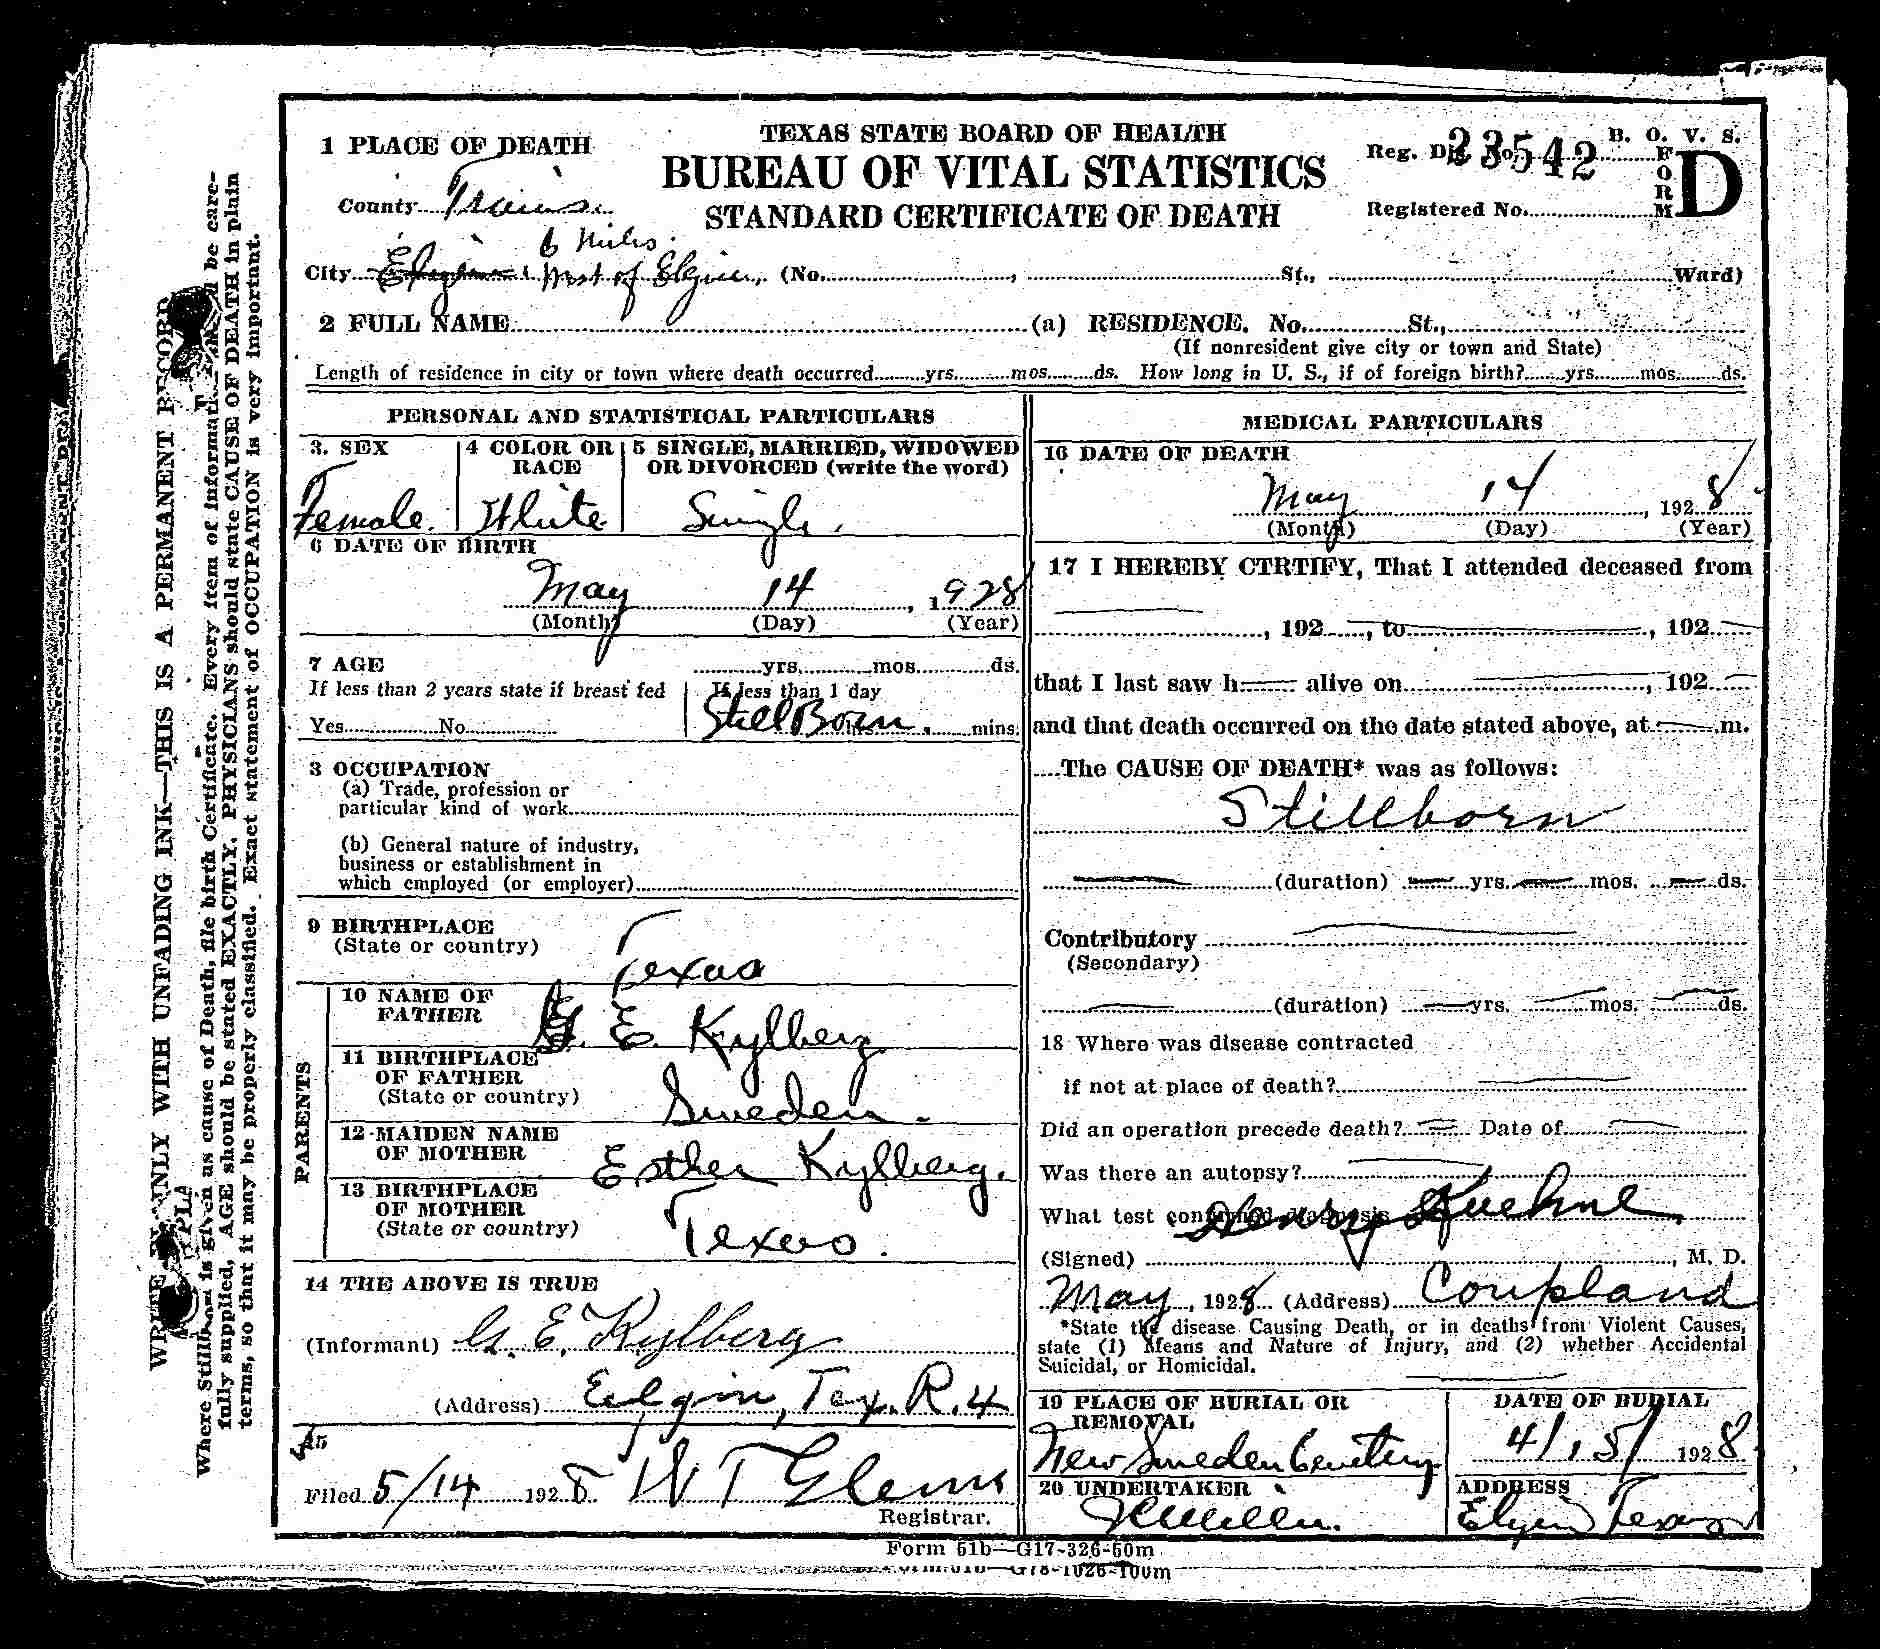 TEXAS STATE BOARD OF HEALTH
BUREAU OF VITAL STATISTICS
STANDARD CERTIFICATE OF DEATH
B. O. V. S.
FORM D
Reg. Dis. No. 23542
Registered No.
1 PLACE OF DEATH
County Travis.
6 Miles
City Elgin West of Elgin, (No. , St., Ward)
2 FULL NAME (a) RESIDENCE. No. St.,
(If nonresident give city or town and State)
Length of residence in city or town where death occurred yrs. mos. ds. How long in U. S., if of foreign birth? yrs. mos. ds.
PERSONAL AND STATISTICAL PARTICULARS
3. SEX
Female.
4 COLOR OR RACE
White
5 SINGLE, MARRIED, WIDOWED
OR DIVORCED (write the word)
Single.
6 DATE OF BIRTH
May 14, 1928
(Month) (Day) (Year)
7 AGE yrs. mos. ds.
If less than 2 years state if breast fed
Yes No
If less than 1 day
Still Born. mins.
3 OCCUPATION
(a) Trade, profession or
particular kind of work
(b) General nature of industry,
business or establishment in
which employed (or employer)
9 BIRTHPLACE
(State or country)
Texas
PARENTS
10 NAME OF
FATHER
G. E. Kylberg
11 BIRTHPLACE
OF FATHER
(State or country)
Sweden.
12 MAIDEN NAME
OF MOTHER
Esther Kylberg.
13 BIRTHPLACE
OF MOTHER
(State or country)
Texas.
14 THE ABOVE IS TRUE
(Informant) G. E. Kylberg
(Address) Eelgin, Tex. R. 4
15
Filed 5/14 1928 W T
Registrar.
MEDICAL PARTICULARS
16 DATE OF DEATH
May 14, 1928
(Month) (Day) (Year)
17 I HEREBY CTRTIFY, That I attended deceased from
, 192 , to , 192
that I last saw h alive on , 192
and that death occurred on the date stated above, at m.
The CAUSE OF DEATH* was as follows:
Stillborn
(duration) yrs. mos. ds.
Contributory
(Secondary)
(duration) yrs. mos. ds.
18 Where was disease contracted
if not at place of death?
Did an operation precede death? Date of
Was there an autopsy?
What test confirmed diagnosis
Henry Kuehne
(Signed) , M. D.
May, 1928 (Address) Coupland
*State the disease Causing Death, or in deaths from Violent Causes,
state (1) Means and Nature of Injury, and (2) whether Accidental
Suicidal, or Homicidal.
19 PLACE OF BURIAL OR
REMOVAL
New Sweden Cemetery
DATE OF BURIAL
4/15/ 1928
20 UNDERTAKER
ADDRESS
Elgin Texas
Form 51b—G17-326-50m
G78-1026-100m
WRITE PLAINLY WITH UNFADING INK—THIS IS A PERMANENT RECORD
Where Stillborn is given as cause of Death, file birth Certificate. Every item of information should be care-
fully supplied. AGE should be stated EXACTLY. PHYSICIANS should state CAUSE OF DEATH in plain
terms, so that it may be properly classified. Exact statement of OCCUPATION is very important.